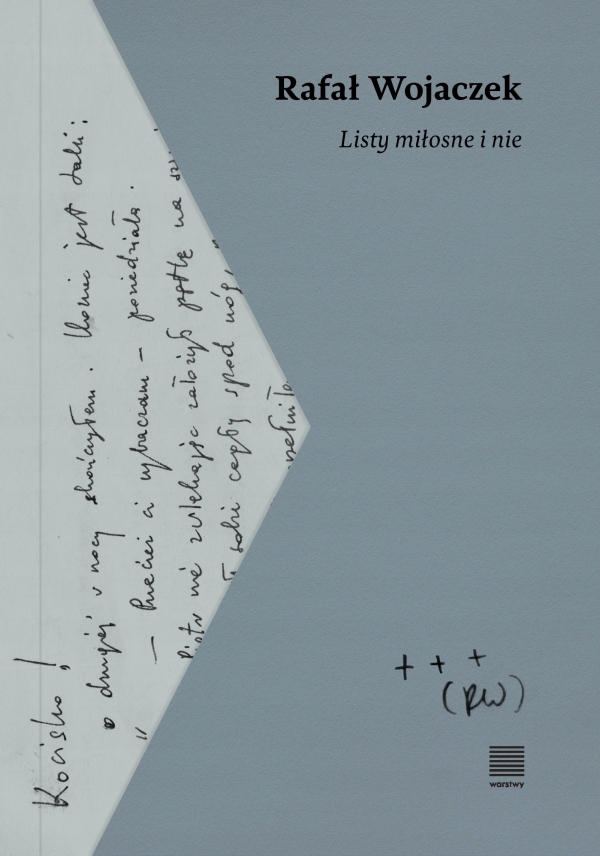 Rafał Wojaczek
Listy miłosne i nie
Kocisko!
o drugiej w nocy skończyłem. Koniec jest taki:
„— Przecież ci wybaczam — powiedziała.
Piotr nie zwlekając założył pętlę na
sobie spod nóg,
+ + +
(RW)
warstwy